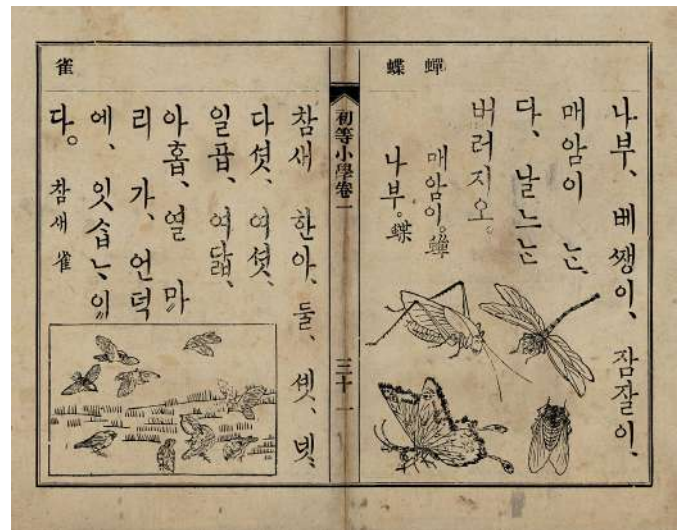 蟬
蝶
나부、 베쨍이、 잠잘이、
매암이 ᄂᆞᆫ、
다、 날느ᄂᆞᆫ
버러지오。
매암이。蟬
나부。蝶
初等小學卷一 三十一
雀
참새 한아、 둘、 셋、 넷、
다섯、 여섯、
일곱、 여닯、
아홉、 열 마
리 가、 언덕
에、 잇습ᄂᆞ이
다。 참새 雀